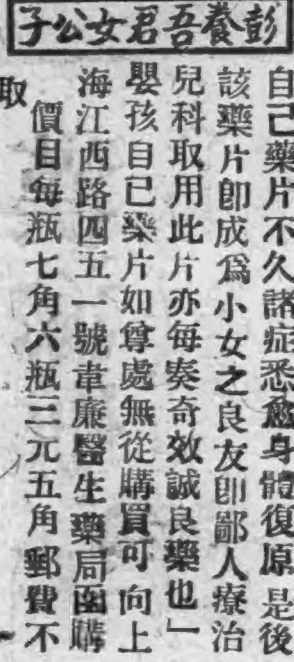 彭養吾君女公子
自己藥片不久諸症悉愈身體復原是後
該藥片卽成爲小女之良友卽鄙人療治
兒科取用此片亦每奏奇效誠良藥也」
嬰孩自己藥片如尊處無從購買可向上
海江西路四五一號韋廉醫生藥局函購
價目每瓶七角六瓶三元五角郵費不
取